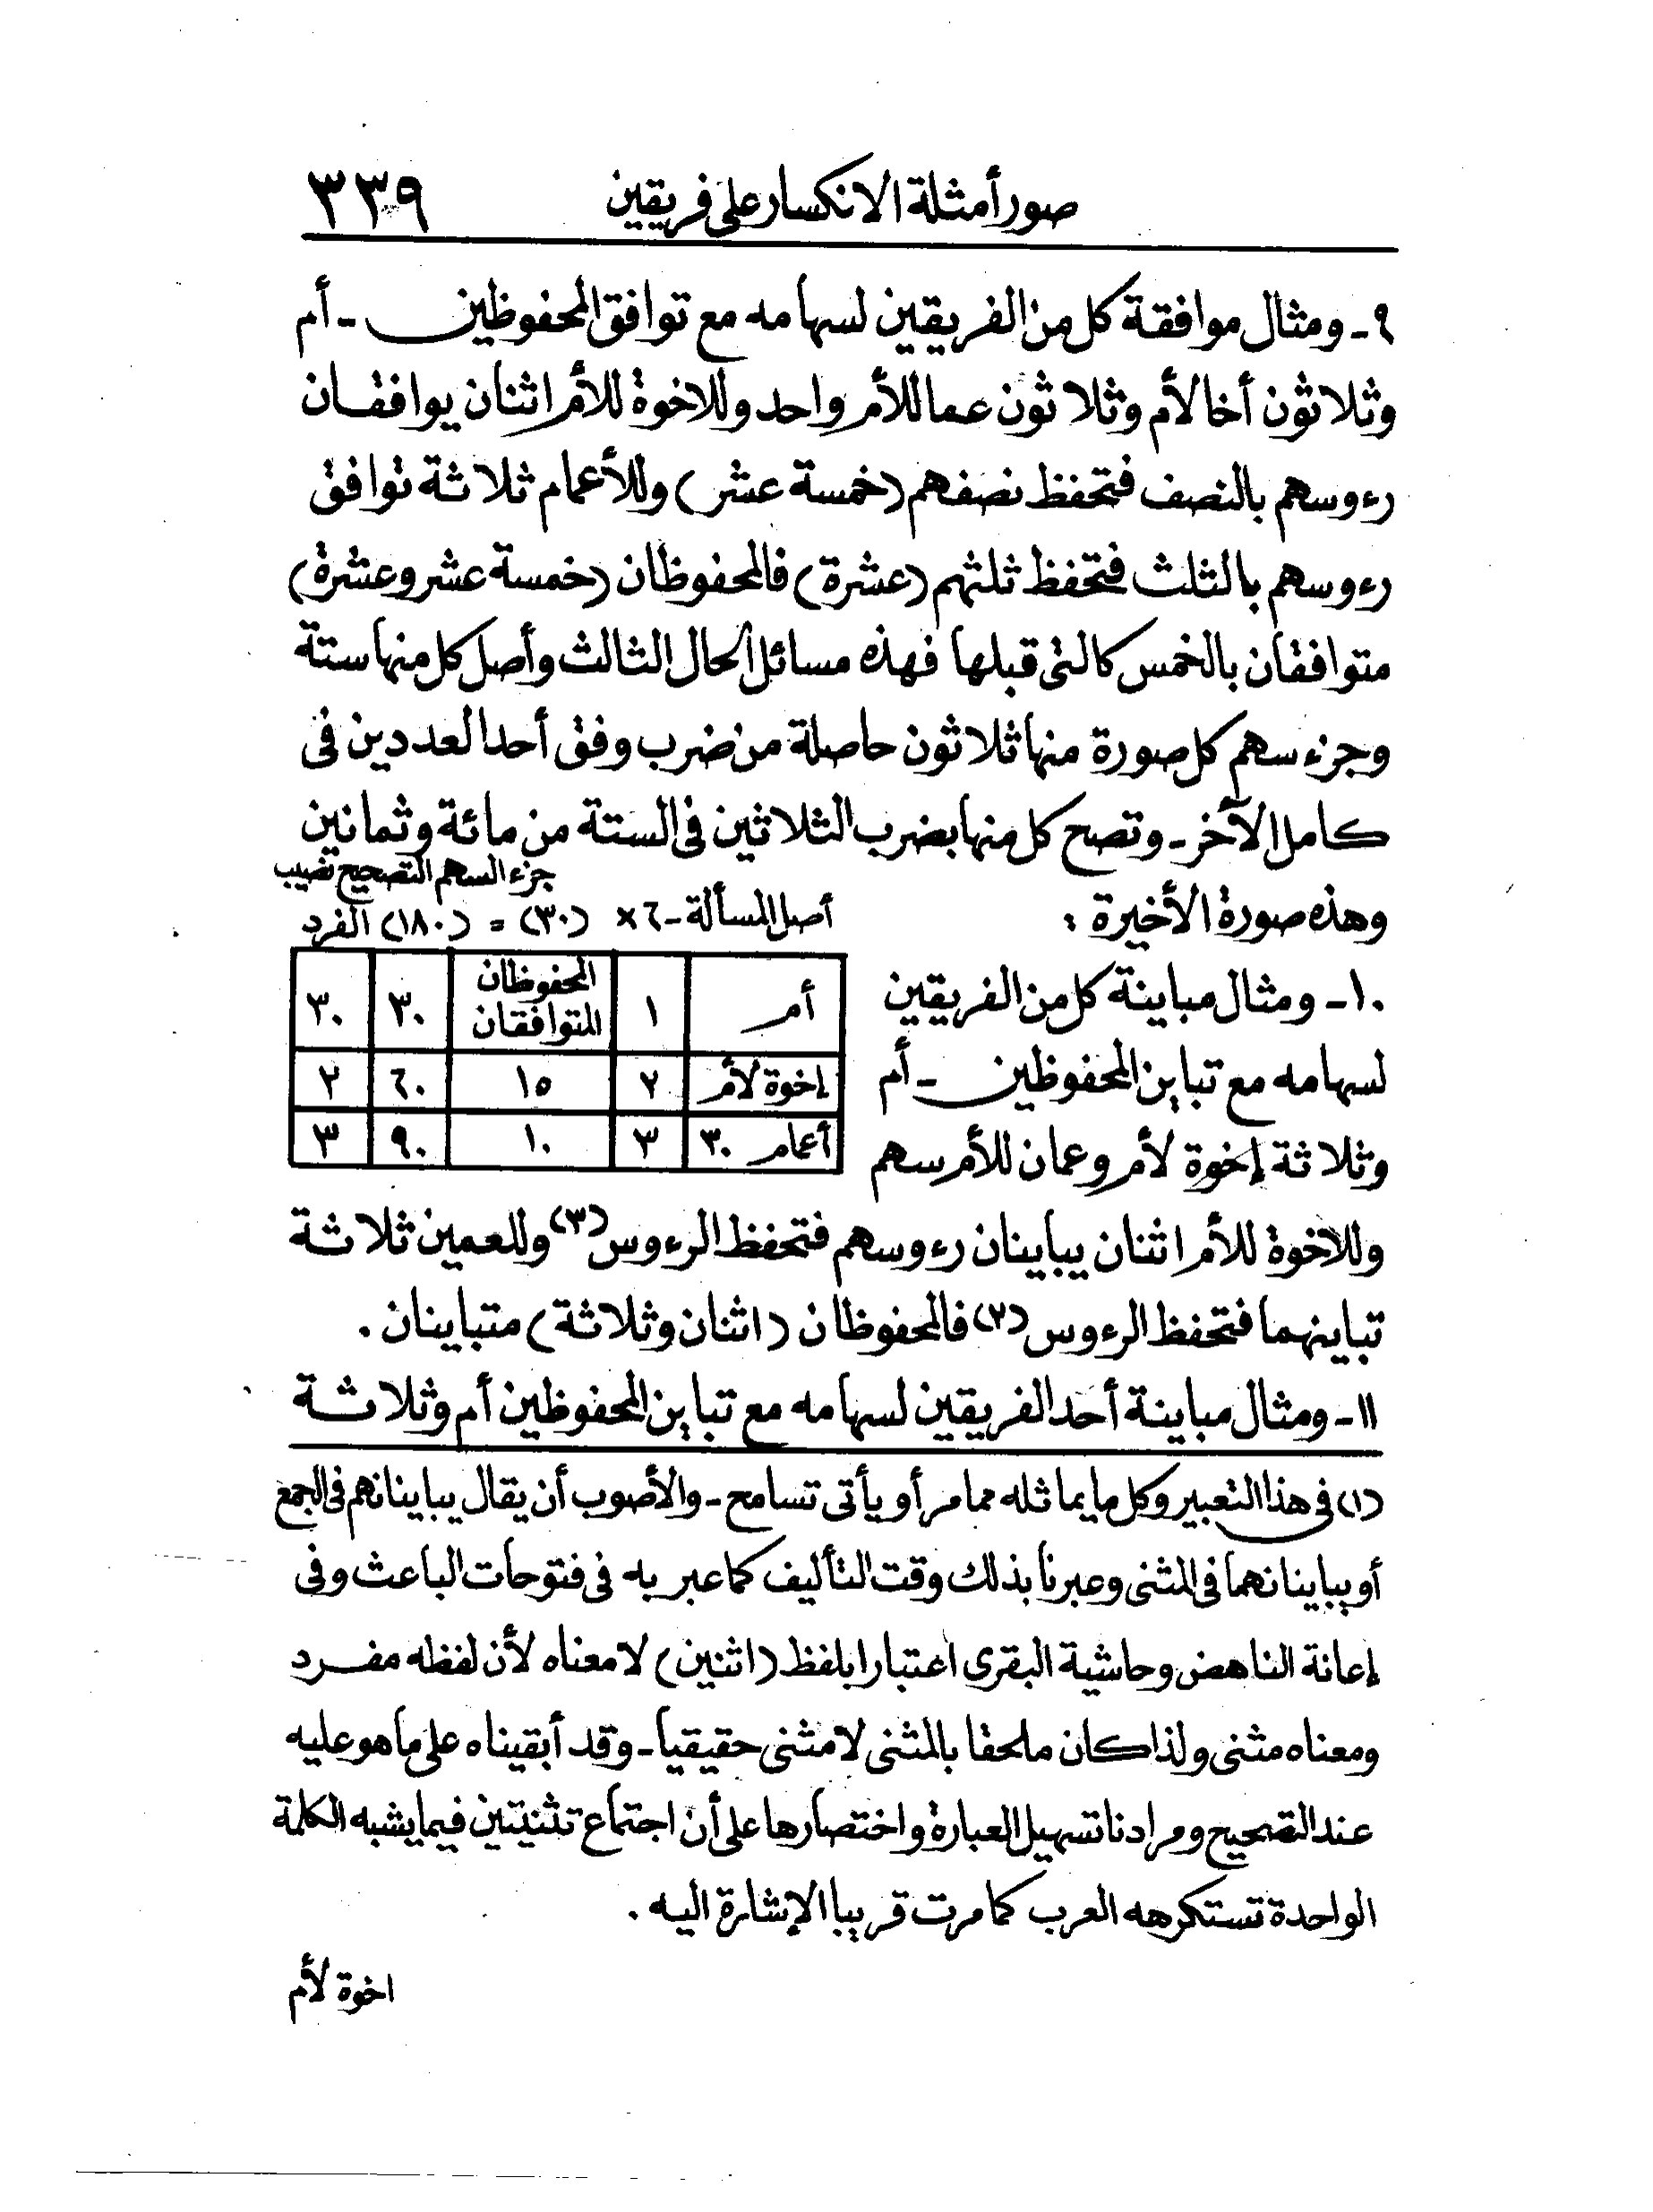 صور أمثلة الانكسار على فريقين ٣٣٩
٩ـ ومثال موافقة كل من الفريقين لسهامه مع توافق المحفوظين ـ أم
وثلاثون أخا لأم وثلاثون عما للأم واحد وللاخوة للأم اثنان يوافقان
رءوسهم بالنصف فتحفظ نصفهم (خمسة عشر) وللأعمام ثلاثة توافق
رءوسهم بالثلث فتحفظ ثلثهم (عشرة) فالمحفوظان (خمسة عشر وعشرة)
متوافقان بالخمس كالتى قبلها فهذه مسائل الحال الثالث وأصل كل منها ستة
وجزء سهم كل صورة منها ثلاثون حاصلة من ضرب وفق أحد العددين فى
كامل الآخر ـ وتصح كل منها بضرب الثلاثين فى الستة من مائة وثمانين
وهذه صورة الأخيرة :
جزء السهم التصحيح نصيب
أصل المسألة ـ ٦ × (٣٠) = (١٨٠) الفرد
أم ١ المحفوظان المتوافقان ٣٠ ٣٠
إخوة لأم ٢ ١٥ ٦٠ ٢
أعمام ٣٠ ٣ ١٠ ٩٠ ٣
١٠ـ ومثال مباينة كل من الفريقين
لسهامه مع تباين المحفوظين ـ أم
وثلاثة إخوة لأم وعمان للأم سهم
وللاخوة للأم اثنان يباينان رءوسهم فتحفظ الرءوس (٣) وللعمين ثلاثة
تباينهما فتحفظ الرءوس (٢) فالمحفوظان (اثنان وثلاثة) متباينان .
١١ـ ومثال مباينة أحد الفريقين لسهامه مع تباين المحفوظين أم وثلاثة
(١) فى هذا التعبير وكل ما يماثله مما مر أو يأتى تسامح ـ والأصوب أن يقال يباينانهم فى الجمع
أو يباينانهما فى المثنى وعبرنا بذلك وقت التأليف كما عبر به فى فتوحات الباعث وفى
إعانة الناهض وحاشية البقرى اعتبارا بلفظ (اثنين) لا معناه لأن لفظه مفرد
ومعناه مثنى ولذا كان ملحقا بالمثنى لا مثنى حقيقيا ـ وقد أبقيناه على ما هو عليه
عند التصحيح ومرادنا تسهيل العبارة واختصارها على أن اجتماع تثنيتين فيما يشبه الكلمة
الواحدة تستكرهه العرب كما مرت قريبا الإشارة اليه .
اخوة لأم